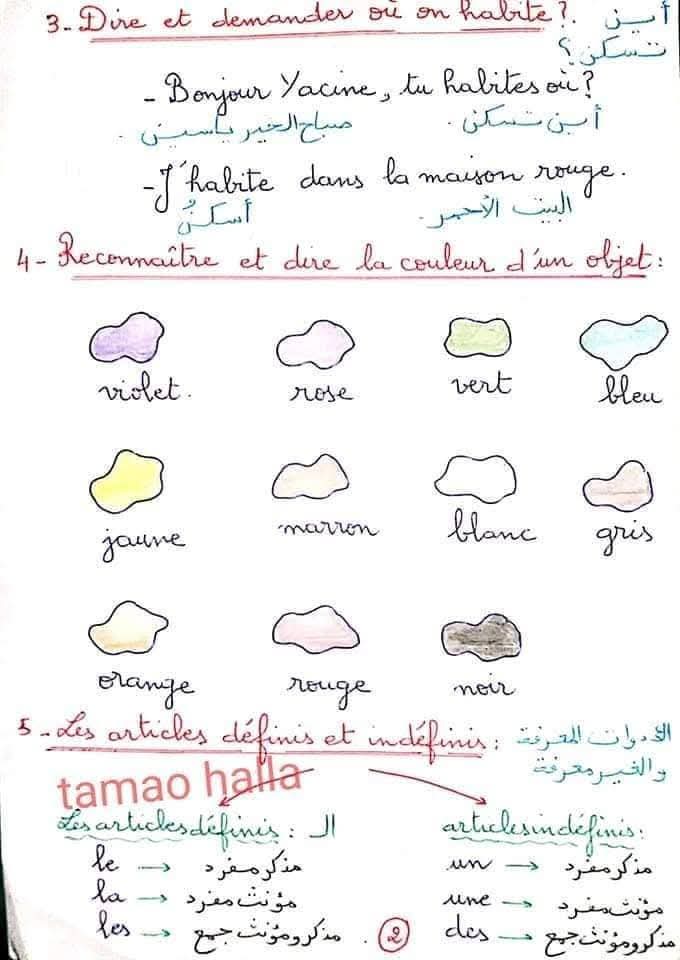 3 - Dire et demander où on habite ?. أين
تسكن ؟
- Bonjour Yacine, tu habites où ?
صباح الخير ياسين . أين تسكن .
- J'habite dans la maison rouge.
أسكنُ البيت الأحمر .
4 - Reconnaître et dire la couleur d'un objet :
violet. rose vert bleu
jaune marron blanc gris
orange rouge noir
5 - Les articles définis et indéfinis : الأدوات المعرفة
والغير معرفة
tamao halla
Les articles définis : الـ articles indéfinis :
le → مذكر مفرد un → مذكر مفرد
la → مؤنث مفرد une → مؤنث مفرد
les → مذكر ومؤنث جمع . 2 des → مذكر ومؤنث جمع